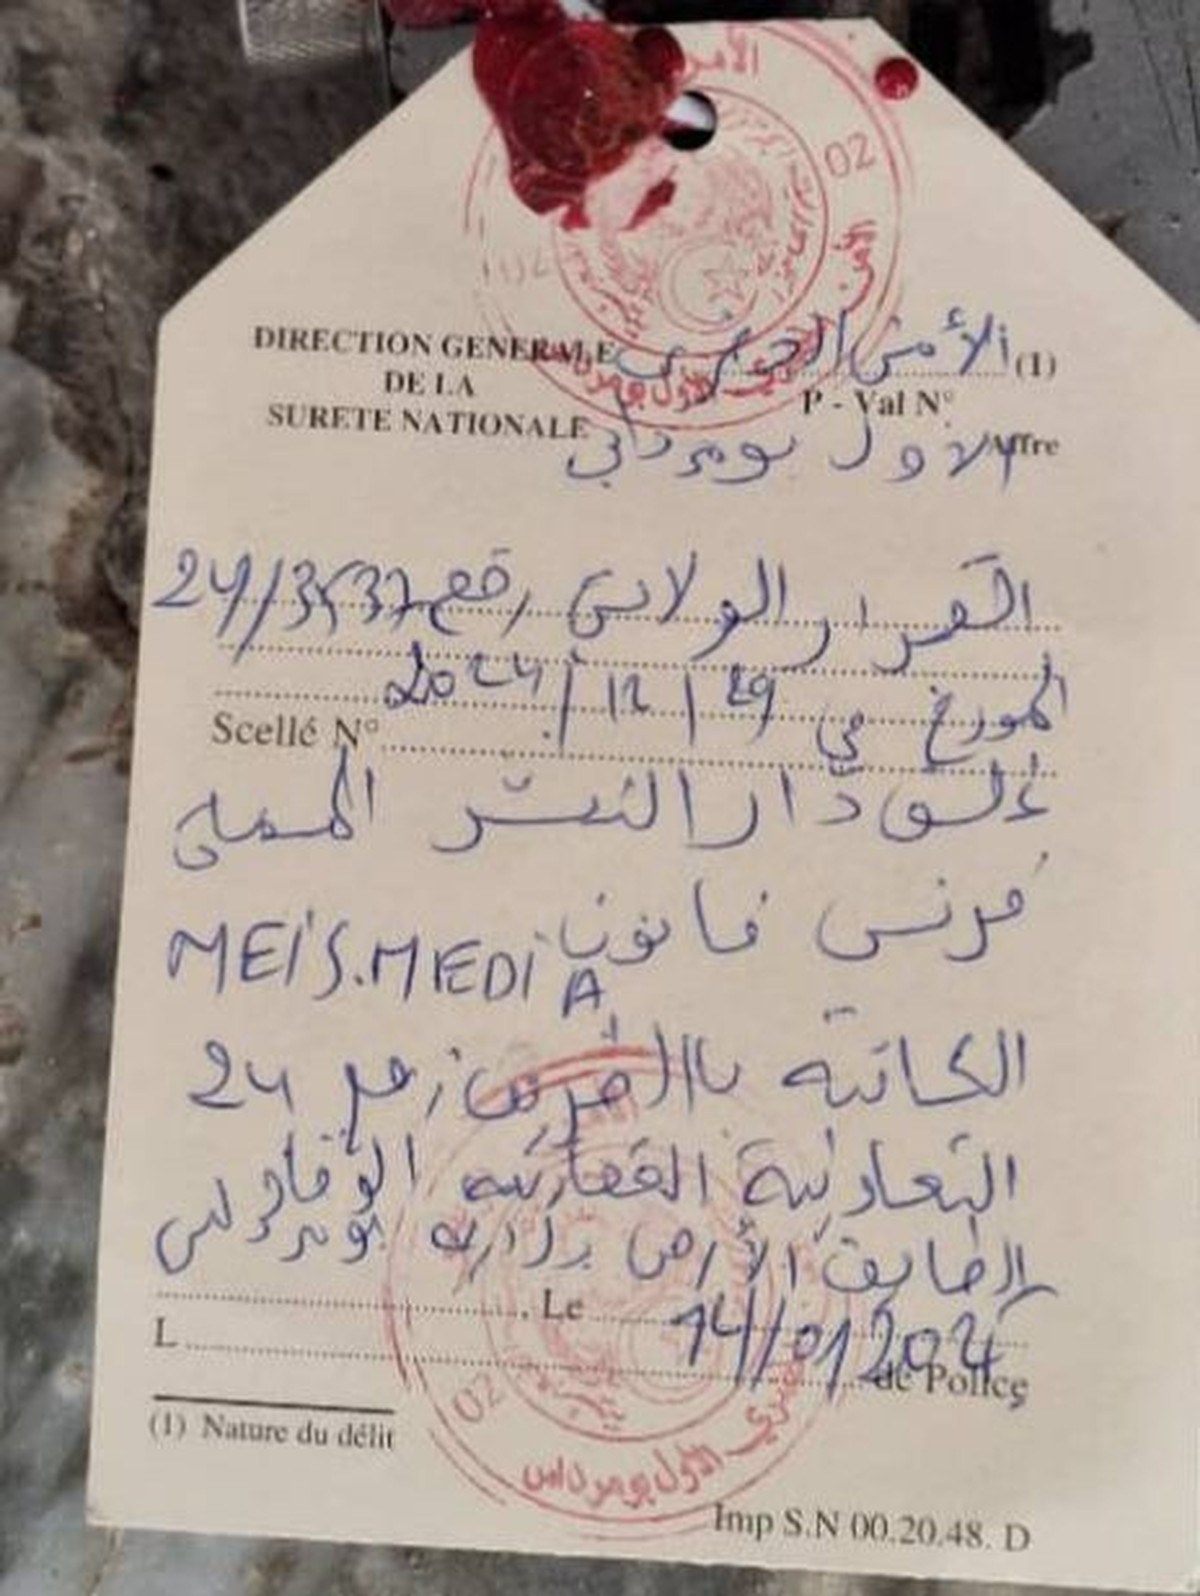 DIRECTION GENERALE
DE LA
SURETE NATIONALE
الأمن الحضري (1)
P - Val N°
الاول بومرداس
Affre
القرار الولائي رقم 24/3537
المؤرخ في 29/12/2024
Scellé N°
غلق دار النشر المسمى
فرنس فانون MEIS.MEDIA
الكائنة بالفرض رقم 24
التعاونية العقارية الوفاق
الطابق الأرضي بومرداس
Le 14/01/202
L
de Police
(1) Nature du délit
الأمن الحضري الأول بومرداس
02
Imp S.N 00.20.48. D